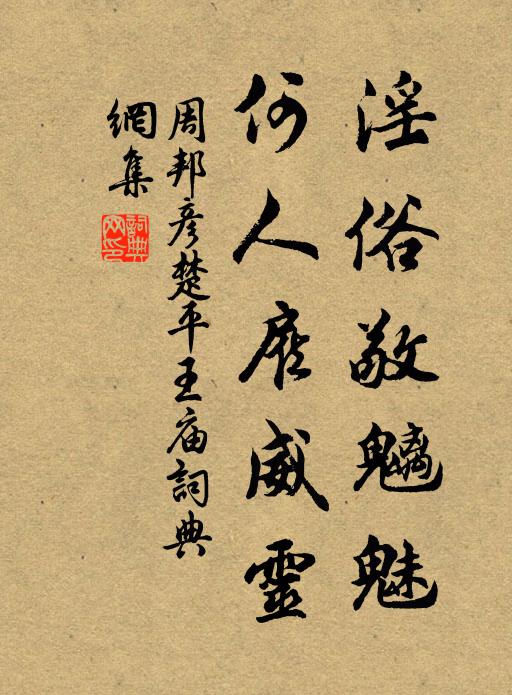 淫俗敬魑魅
何人扆威靈
周邦彦楚平王庙詞典
網集
詞典
网印